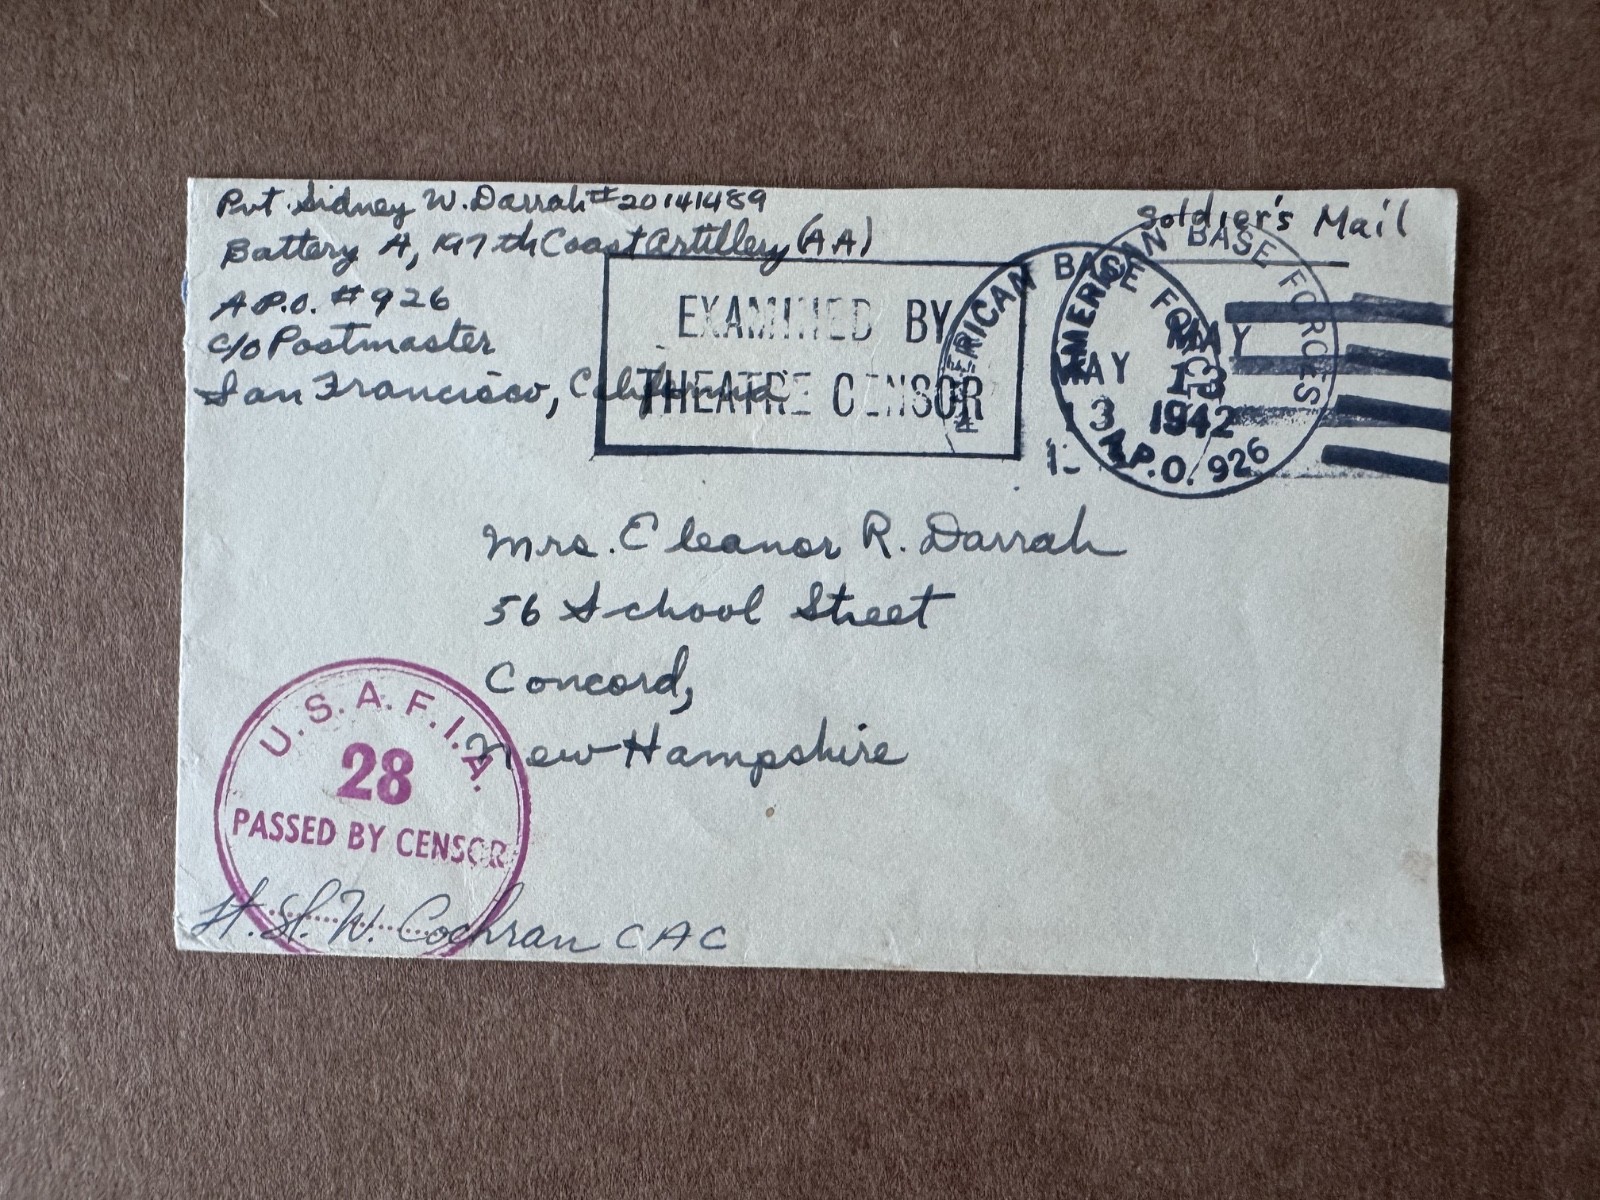 Pvt. Sidney W. Darrah #20141489
Battery A, 197th Coast Artillery (AA)
A.P.O. #926
c/o Postmaster
San Francisco, California
Soldier's Mail
EXAMINED BY
THEATRE CENSOR
AMERICAN BASE FORCES
MAY
13
1942
A.P.O. 926
ERICAN BASE FORCE
AY
3
Mrs. Eleanor R. Darrah
56 School Street
Concord,
New Hampshire
U.S.A.F.I.A.
28
PASSED BY CENSOR
Lt. H. W. Cochran CAC